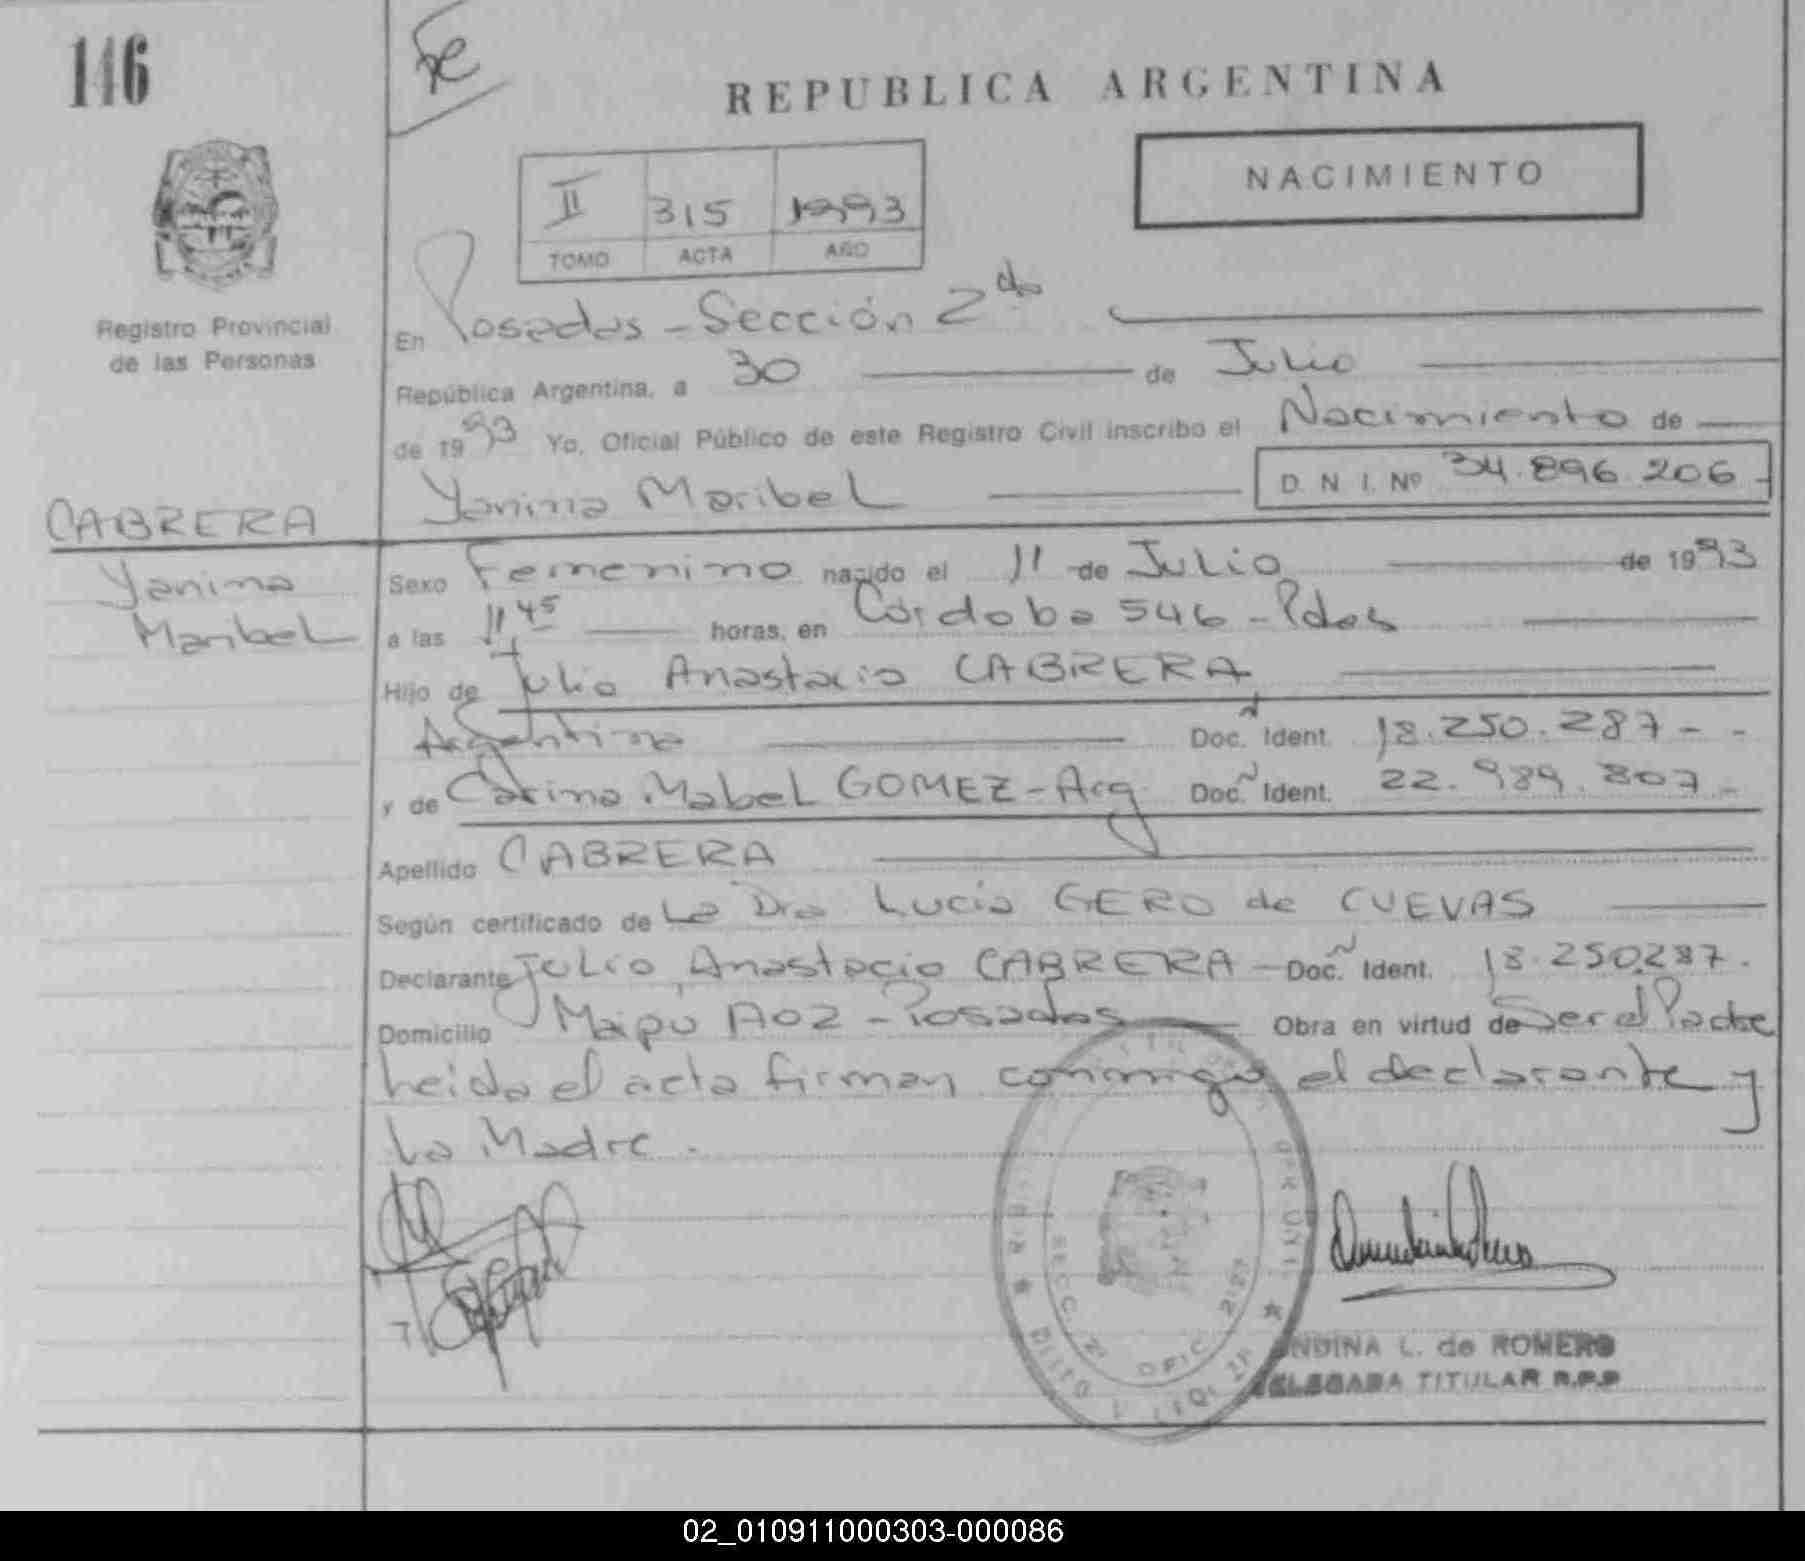 146
REPUBLICA ARGENTINA
NACIMIENTO
II 315 1993
TOMO ACTA AÑO
Registro Provincial
de las Personas
En Posadas - Sección 2da
República Argentina, a 30 de Julio
de 1993 Yo, Oficial Público de este Registro Civil inscribo el Nacimiento de
Yanina Maribel D. N. I. Nº 34.896.206 -
CABRERA
Yanina
Maribel
Sexo Femenino nacido el 11 de Julio de 1993
a las 11 45 horas, en Córdoba 546 - Pdas
Hijo de Julio Anastacio CABRERA
Argentina Doc. Ident. 18.250.287 - -
y de Carina Mabel GOMEZ - Arg Doc. Ident. 22.989.807 -
Apellido CABRERA
Según certificado de La Dra Lucia GERO de CUEVAS
Declarante Julio Anastacio CABRERA - Doc. Ident. 18.250.287.
Domicilio Maipú A02 - Posadas Obra en virtud de Ser el Padre
Leida el acta firman conmigo el declarante y
La Madre.
SECC. 2
OFIC.
NDINA L. de ROMERO
ELEGADA TITULAR R.P.P
02_010911000303-000086